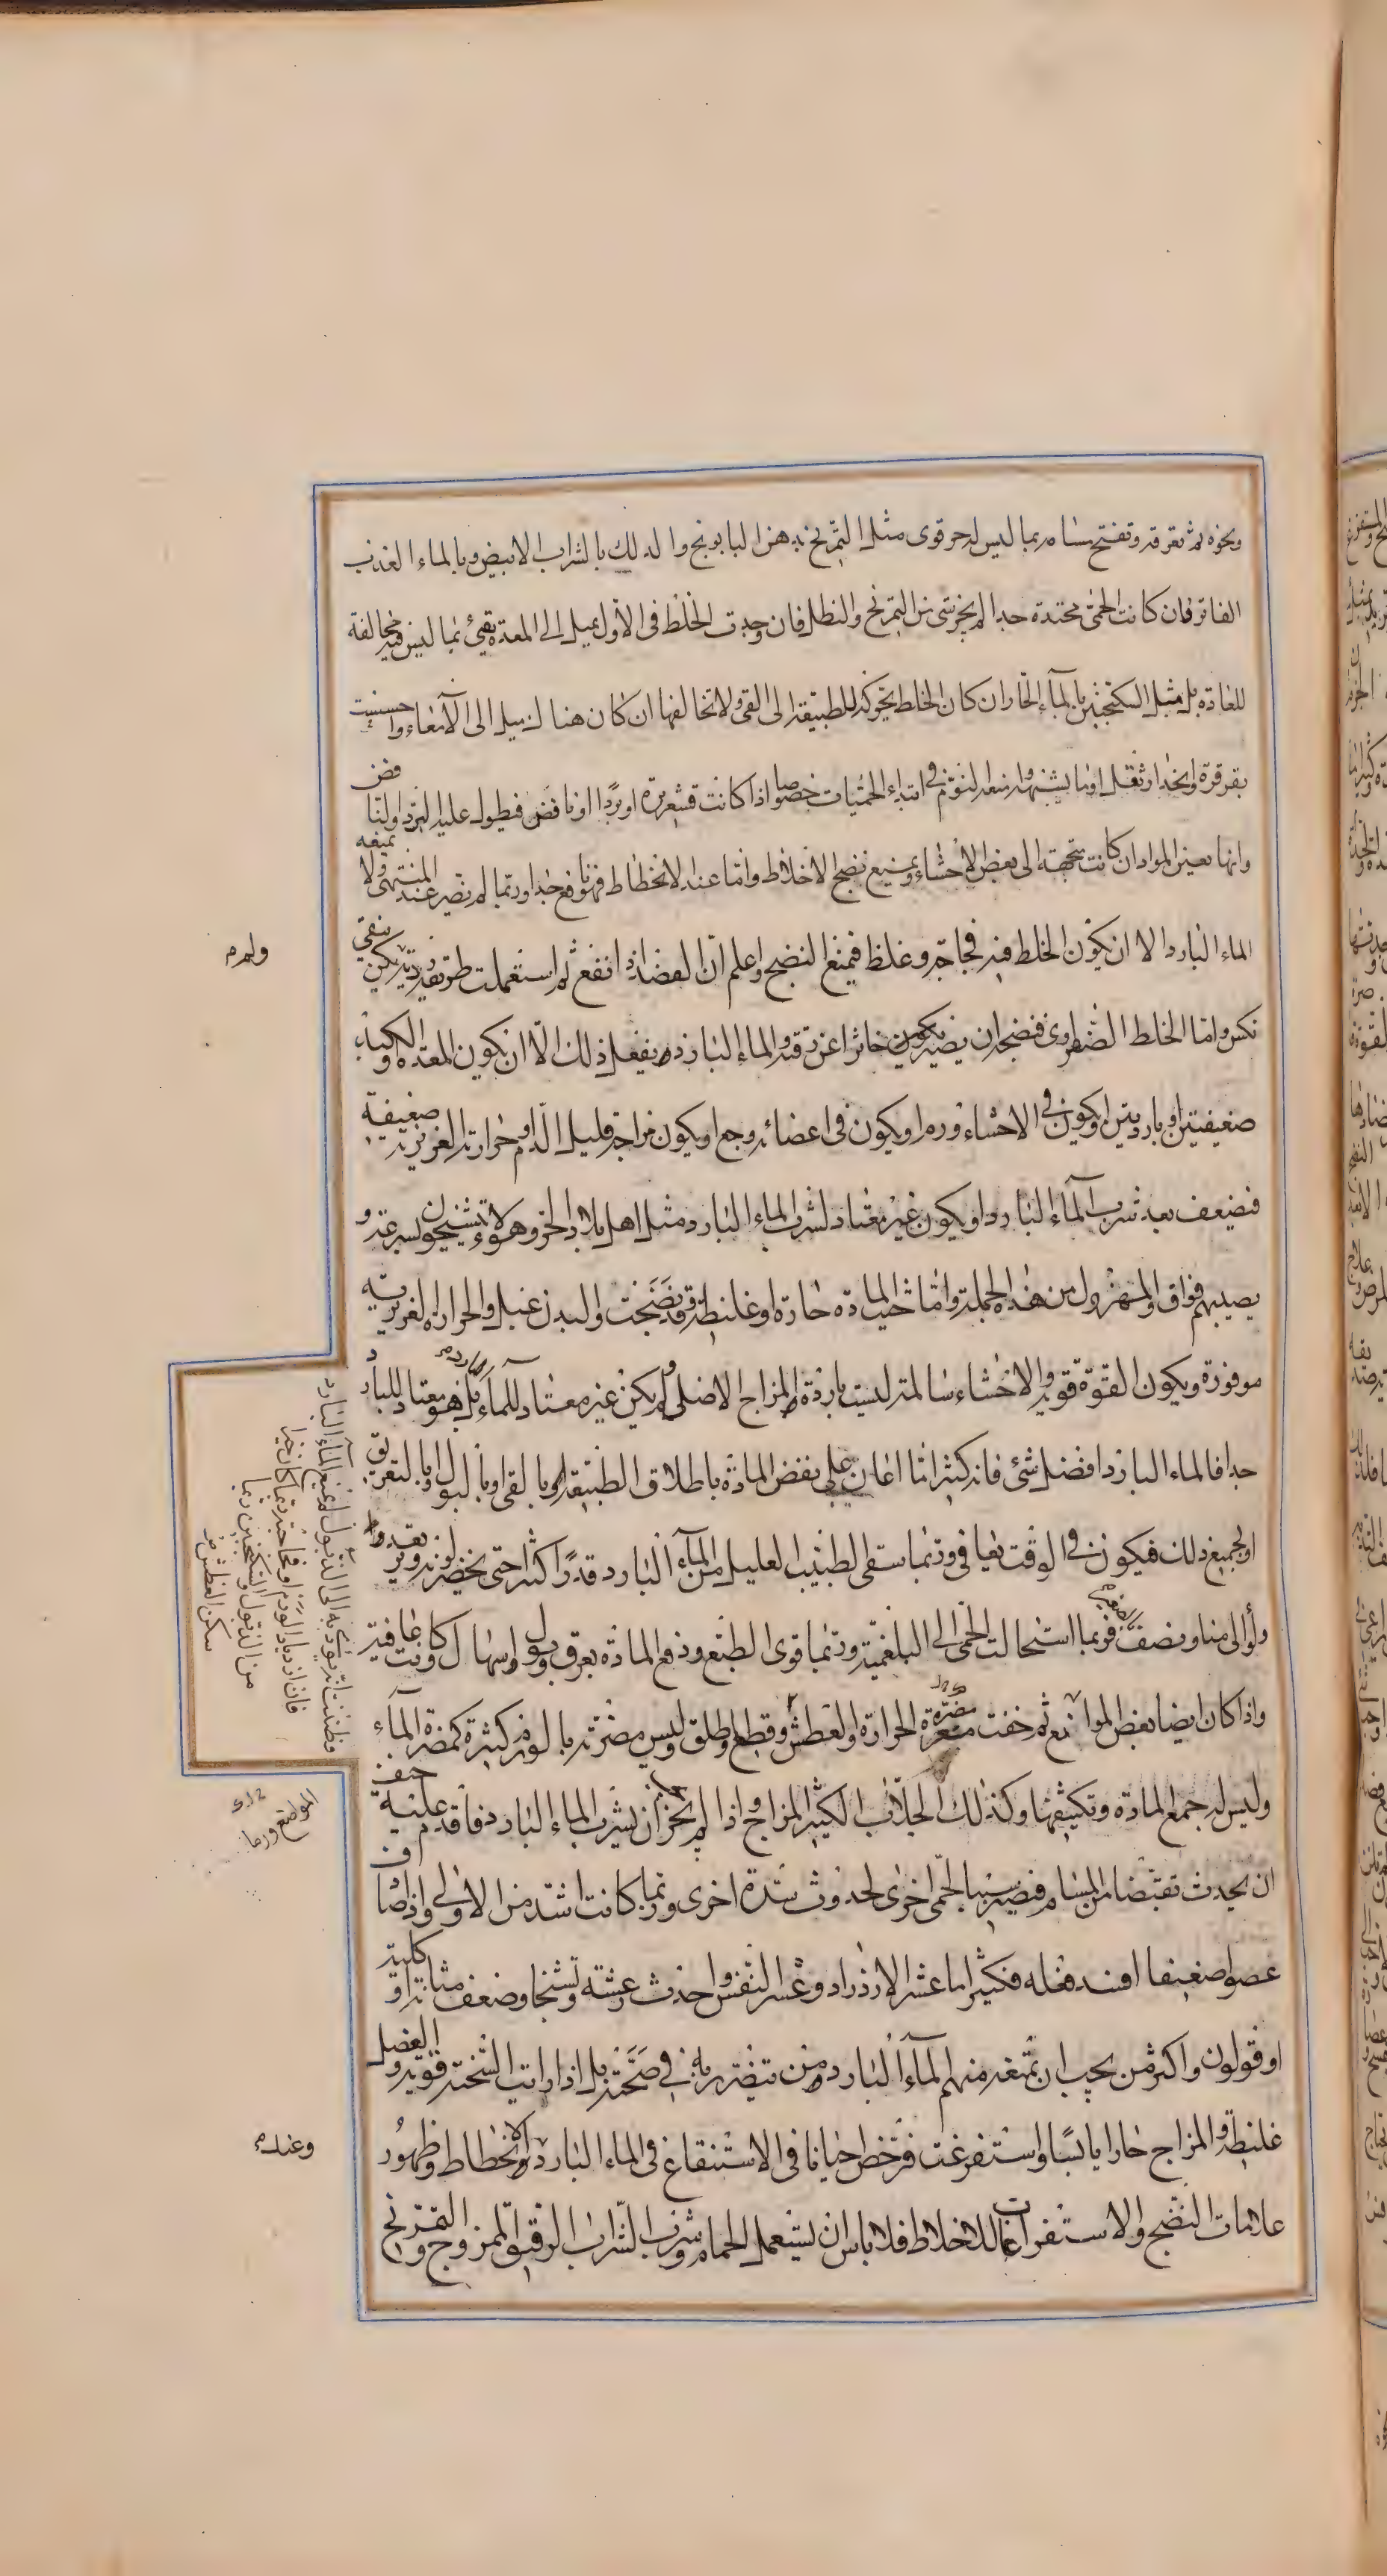 ونحوه ثم تعرقه وتفتح مسامه بما ليس له حر قوى مثل التمريخ بدهن البابونج والدلك بالشراب الابيض وبالماء العذب
الفاتر فان كانت الحمى محتدة جدا لم يجز شئ من التمريخ والنطل فان وجدت الخلط فى الاول يميل الى المعدة تقيئ بما ليس فيه مخالفة
للعادة بل مثل السكنجبين بالماء الحار ان كان الخلط يتحرك للطبيعة الى القى ولا تخالفها ان كان هناك ميل الى الامعاء واحسست
بقرقرة وانحدار ثقل اوما يشبهه وامنعه النوم فى ابتداء الحميات خصوصا اذا كانت قشعريرة او بردا او نافض فيطول عليه البرد والنافض
وانها تعين المواد ان كانت متجهة الى بعض الاحشاء ويمنع نضج الاخلاط واما عند الانحطاط فهو نافع جدا وربما لم يضر عند المنتهى ولا يمنعه
الماء البارد الا ان يكون الخلط فيه فجاجة وغلظ فيمنع النضج واعلم ان الفضد اذا انفع ثم استعملت طريقة ردية يكن
نكس واما الخلط الصفراوى فنضجه ان يصير خاثرا عن رقته والماء البارد يفعل ذلك الا ان يكون المعدة والكبد
ضعيفتين او باردتين او يكون فى الاحشاء ورم او يكون فى اعضائه وجع او يكون مزاجه قليل الدم او حرارته الغريزية ضعيفة
فضعيف بعد شرب الماء البارد او يكون غير معتاد لشرب الماء البارد مثل اهل بلاد الحر وهؤلاء يتشنجون بسرعة و
يصيبهم فواق والمهزول من هذه الجملة واما المادة حارة او غليظة قد نضجت والبدن عبل والحرارة الغريزية
موفورة ويكون القوة قوية والاحشاء سالمة ليست باردة المزاج الاصلى ولم يكن غير معتاد للماء البارد بل هو معتاد للبارد
جدا فالماء البارد افضل شئ فانه كثيرا ما اعان على نفض المادة باطلاق الطبيعة او بالقى او بالبول او بالتعريق
او لجميع ذلك فيكون فى الوقت يعافى وربما سقى الطبيب العليل من الماء البارد قدرا كثيرا حتى يخضر لونه ويرتعد
ولو الى منا ونصف فربما استحالت الحمى الى البلغمية وربما قوى الطبع ودفع المادة بعرق وبول واسهال وكانت عافية
واذا كان ايضا بعض الموانع ثم خفت مضرة الحرارة والعطش وقطع واطلق وليس مضرته بالورم كثيرة كمضرة الماء
وليس له جمع المادة وتكثيفها وكذلك الجلاب الكثير المزاج واذا لم يجز ان يشرب الماء البارد فاقدم عليه خيف
ان يحدث تقبضا من المسام فيصير سببا لحمى اخرى لحدوث سدة اخرى وربما كانت اشد من الاولى واذا صادف
عضوا ضعيفا افسد فعله فكثيرا ما عسر الازدراد وعسر النفس واحدث رعشة وتشنجا وضعف مثانة او كلية
او قولون واكثر من يجب ان تمنعه منهم الماء البارد من يتضرر به فى صحته بل اذا رايت السحنة قوية والعضل
غليظة والمزاج حارا يابسا واستفرغت فرخص احيانا فى الاستنقاع فى الماء البارد وعند الانحطاط وظهور
علامات النضج والاستفراغات للاخلاط فلا باس ان يستعمل الحمام وشرب الشراب الرقيق الممزوج والتمريخ
وظننت انه يؤديه الى الذبول لم يمنع الماء البارد
فان ازدياد الورم او فجاجته ربما كان خيرا
من الذبول والسكنجبين ربما
سكن العطش
وعند